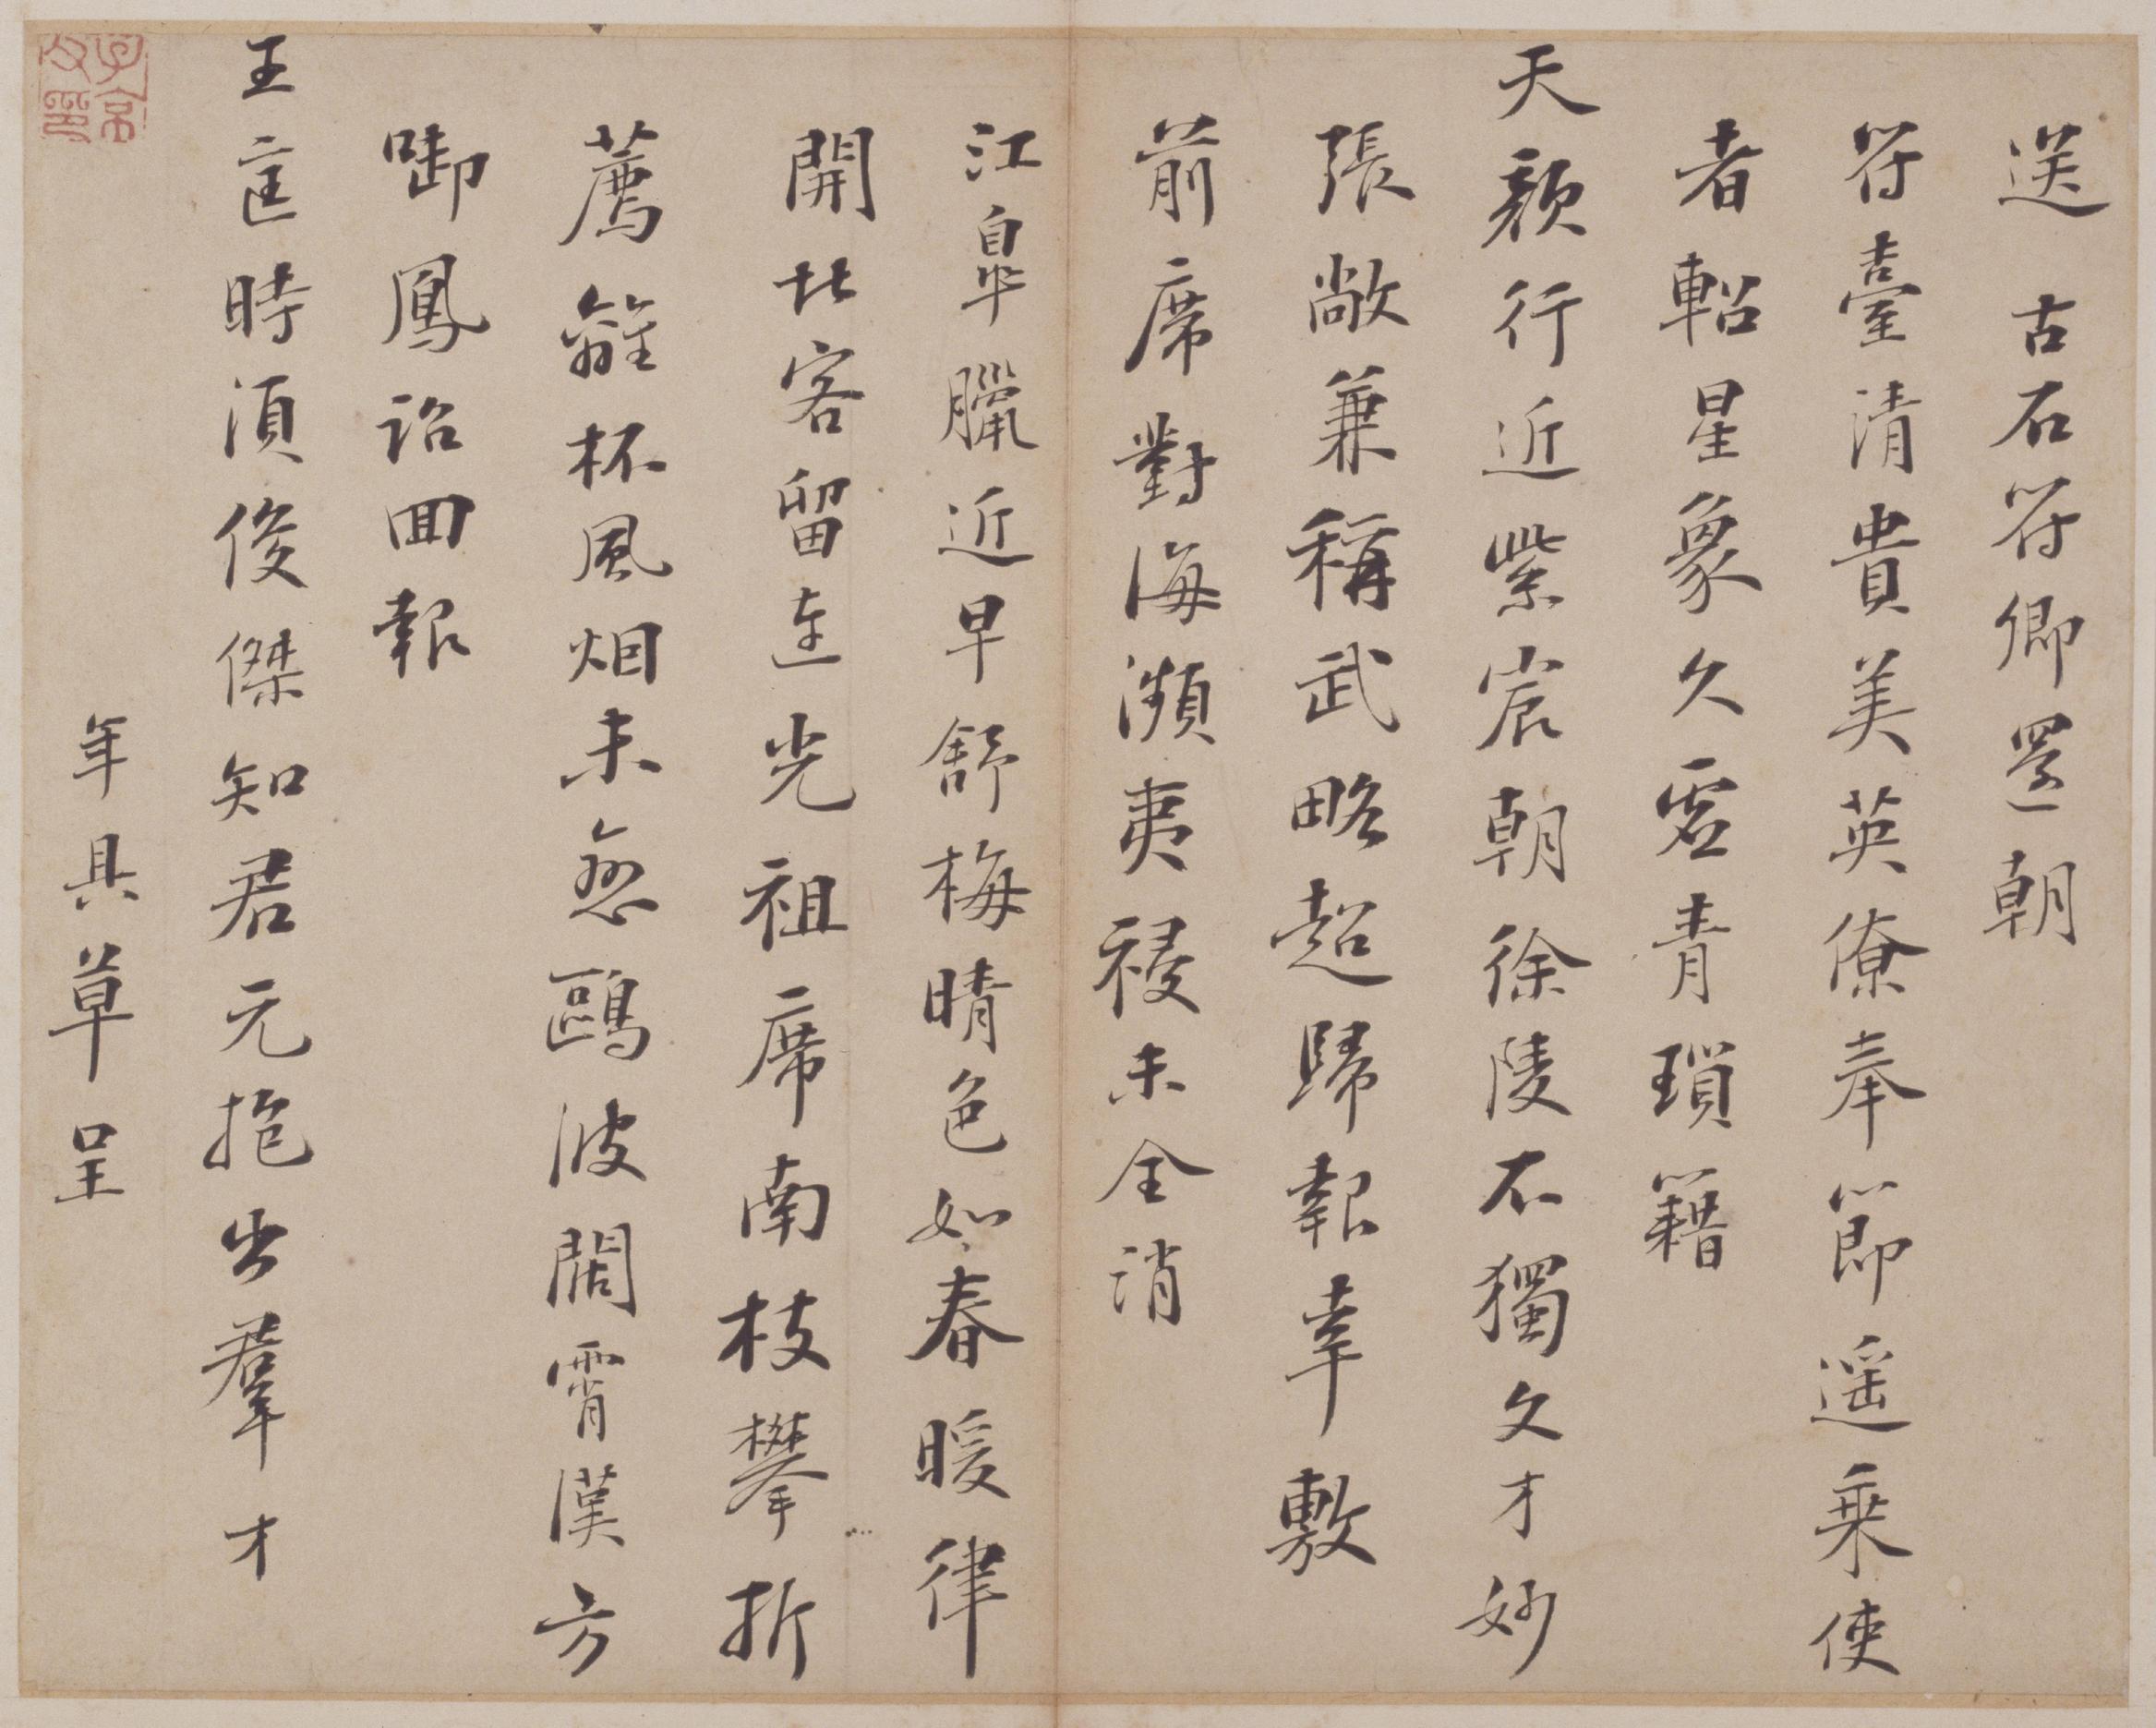 送古石符卿還朝
符臺清貴美英僚奉節遥乘使
者軺星象久虚青瑣籍
天顏行近紫宸朝徐陵不獨文才妙
張敞兼稱武略超歸報幸敷
前席對海瀕夷祲未全消
江臯臘近早舒梅晴色如春暖律
開北客留連光祖席南枝攀折
薦離杯風烟未愈鷗波闊霄漢方
啣鳳詔回報
王匡時須俊傑知君元抱出羣才
年具草呈